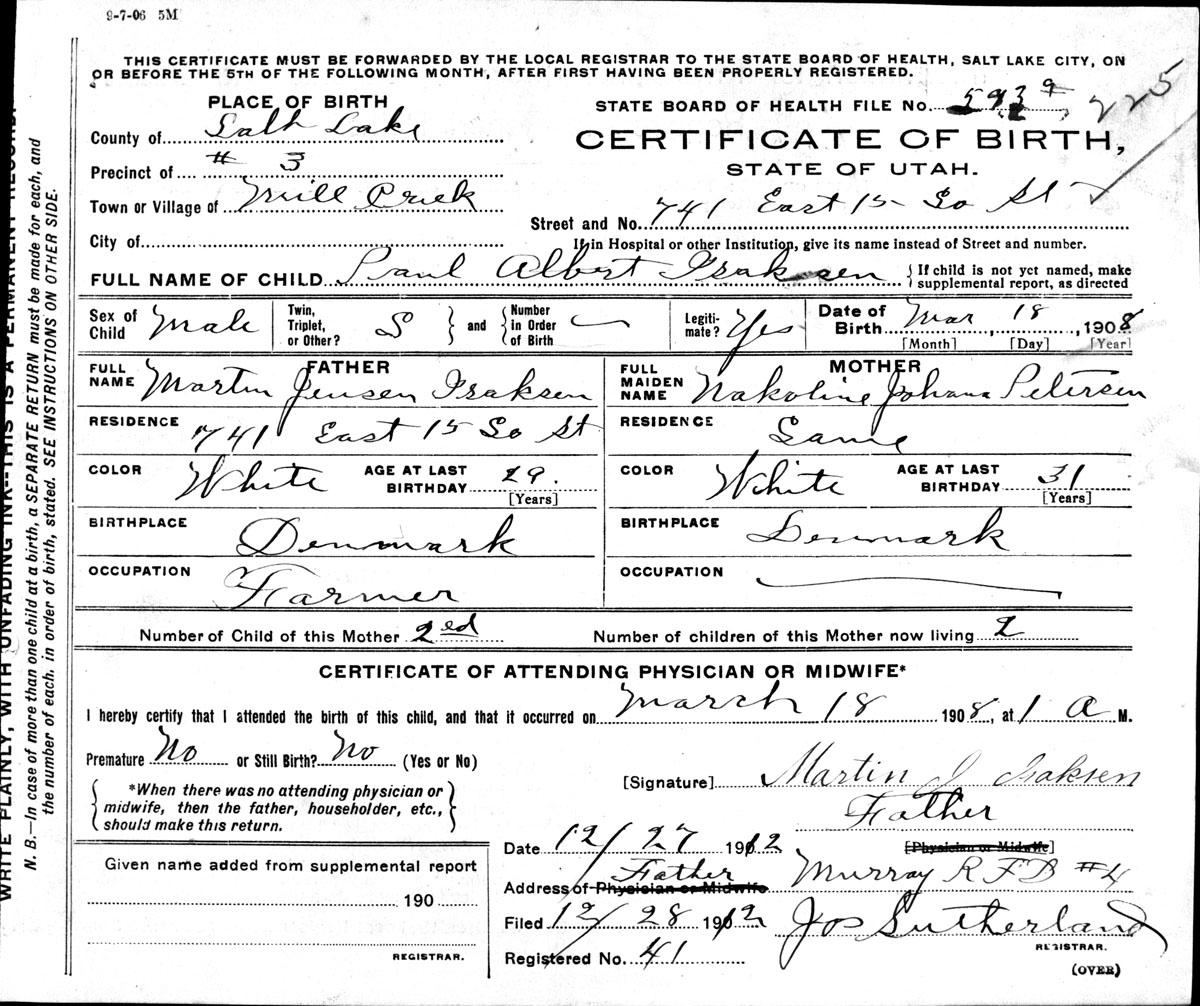 9-7-06 5M
THIS CERTIFICATE MUST BE FORWARDED BY THE LOCAL REGISTRAR TO THE STATE BOARD OF HEALTH, SALT LAKE CITY, ON
OR BEFORE THE 5TH OF THE FOLLOWING MONTH, AFTER FIRST HAVING BEEN PROPERLY REGISTERED.
PLACE OF BIRTH
County of Salt Lake
Precinct of # 3
Town or Village of Mill Creek
City of
STATE BOARD OF HEALTH FILE No. 225
CERTIFICATE OF BIRTH,
STATE OF UTAH.
Street and No. 741 East 15 So St
If in Hospital or other Institution, give its name instead of Street and number.
FULL NAME OF CHILD Paul Albert Isaksen { If child is not yet named, make
supplemental report, as directed
Sex of Child Male
Twin, Triplet, or Other? S } and { Number in Order of Birth
Legiti-mate? Yes
Date of Birth Mar 18, 1908
[Month] [Day] [Year]
FATHER
FULL NAME Martin Jensen Isaksen
RESIDENCE 741 East 15 So St
COLOR White AGE AT LAST BIRTHDAY 29. [Years]
BIRTHPLACE Denmark
OCCUPATION Farmer
MOTHER
FULL MAIDEN NAME Nakoline Johana Petersen
RESIDENCE Same
COLOR White AGE AT LAST BIRTHDAY 31 [Years]
BIRTHPLACE Denmark
OCCUPATION
Number of Child of this Mother 2ed Number of children of this Mother now living 2
CERTIFICATE OF ATTENDING PHYSICIAN OR MIDWIFE*
I hereby certify that I attended the birth of this child, and that it occurred on March 18 1908, at 1 A M.
Premature No or Still Birth? No (Yes or No)
{ *When there was no attending physician or
midwife, then the father, householder, etc.,
should make this return. }
[Signature] Martin J Isaksen
Father
[Physician or Midwife]
Date 12/27 1912
Father
Address of Physician or Midwife Murray R F D #4
Filed 12/28 1912 Jos Sutherland
REGISTRAR.
Registered No. 41
(OVER)
Given name added from supplemental report
190
REGISTRAR.
WRITE PLAINLY, WITH UNFADING INK--THIS IS A PERMANENT RECORD.
N. B.—In case of more than one child at a birth, a SEPARATE RETURN must be made for each, and
the number of each, in order of birth, stated. SEE INSTRUCTIONS ON OTHER SIDE.